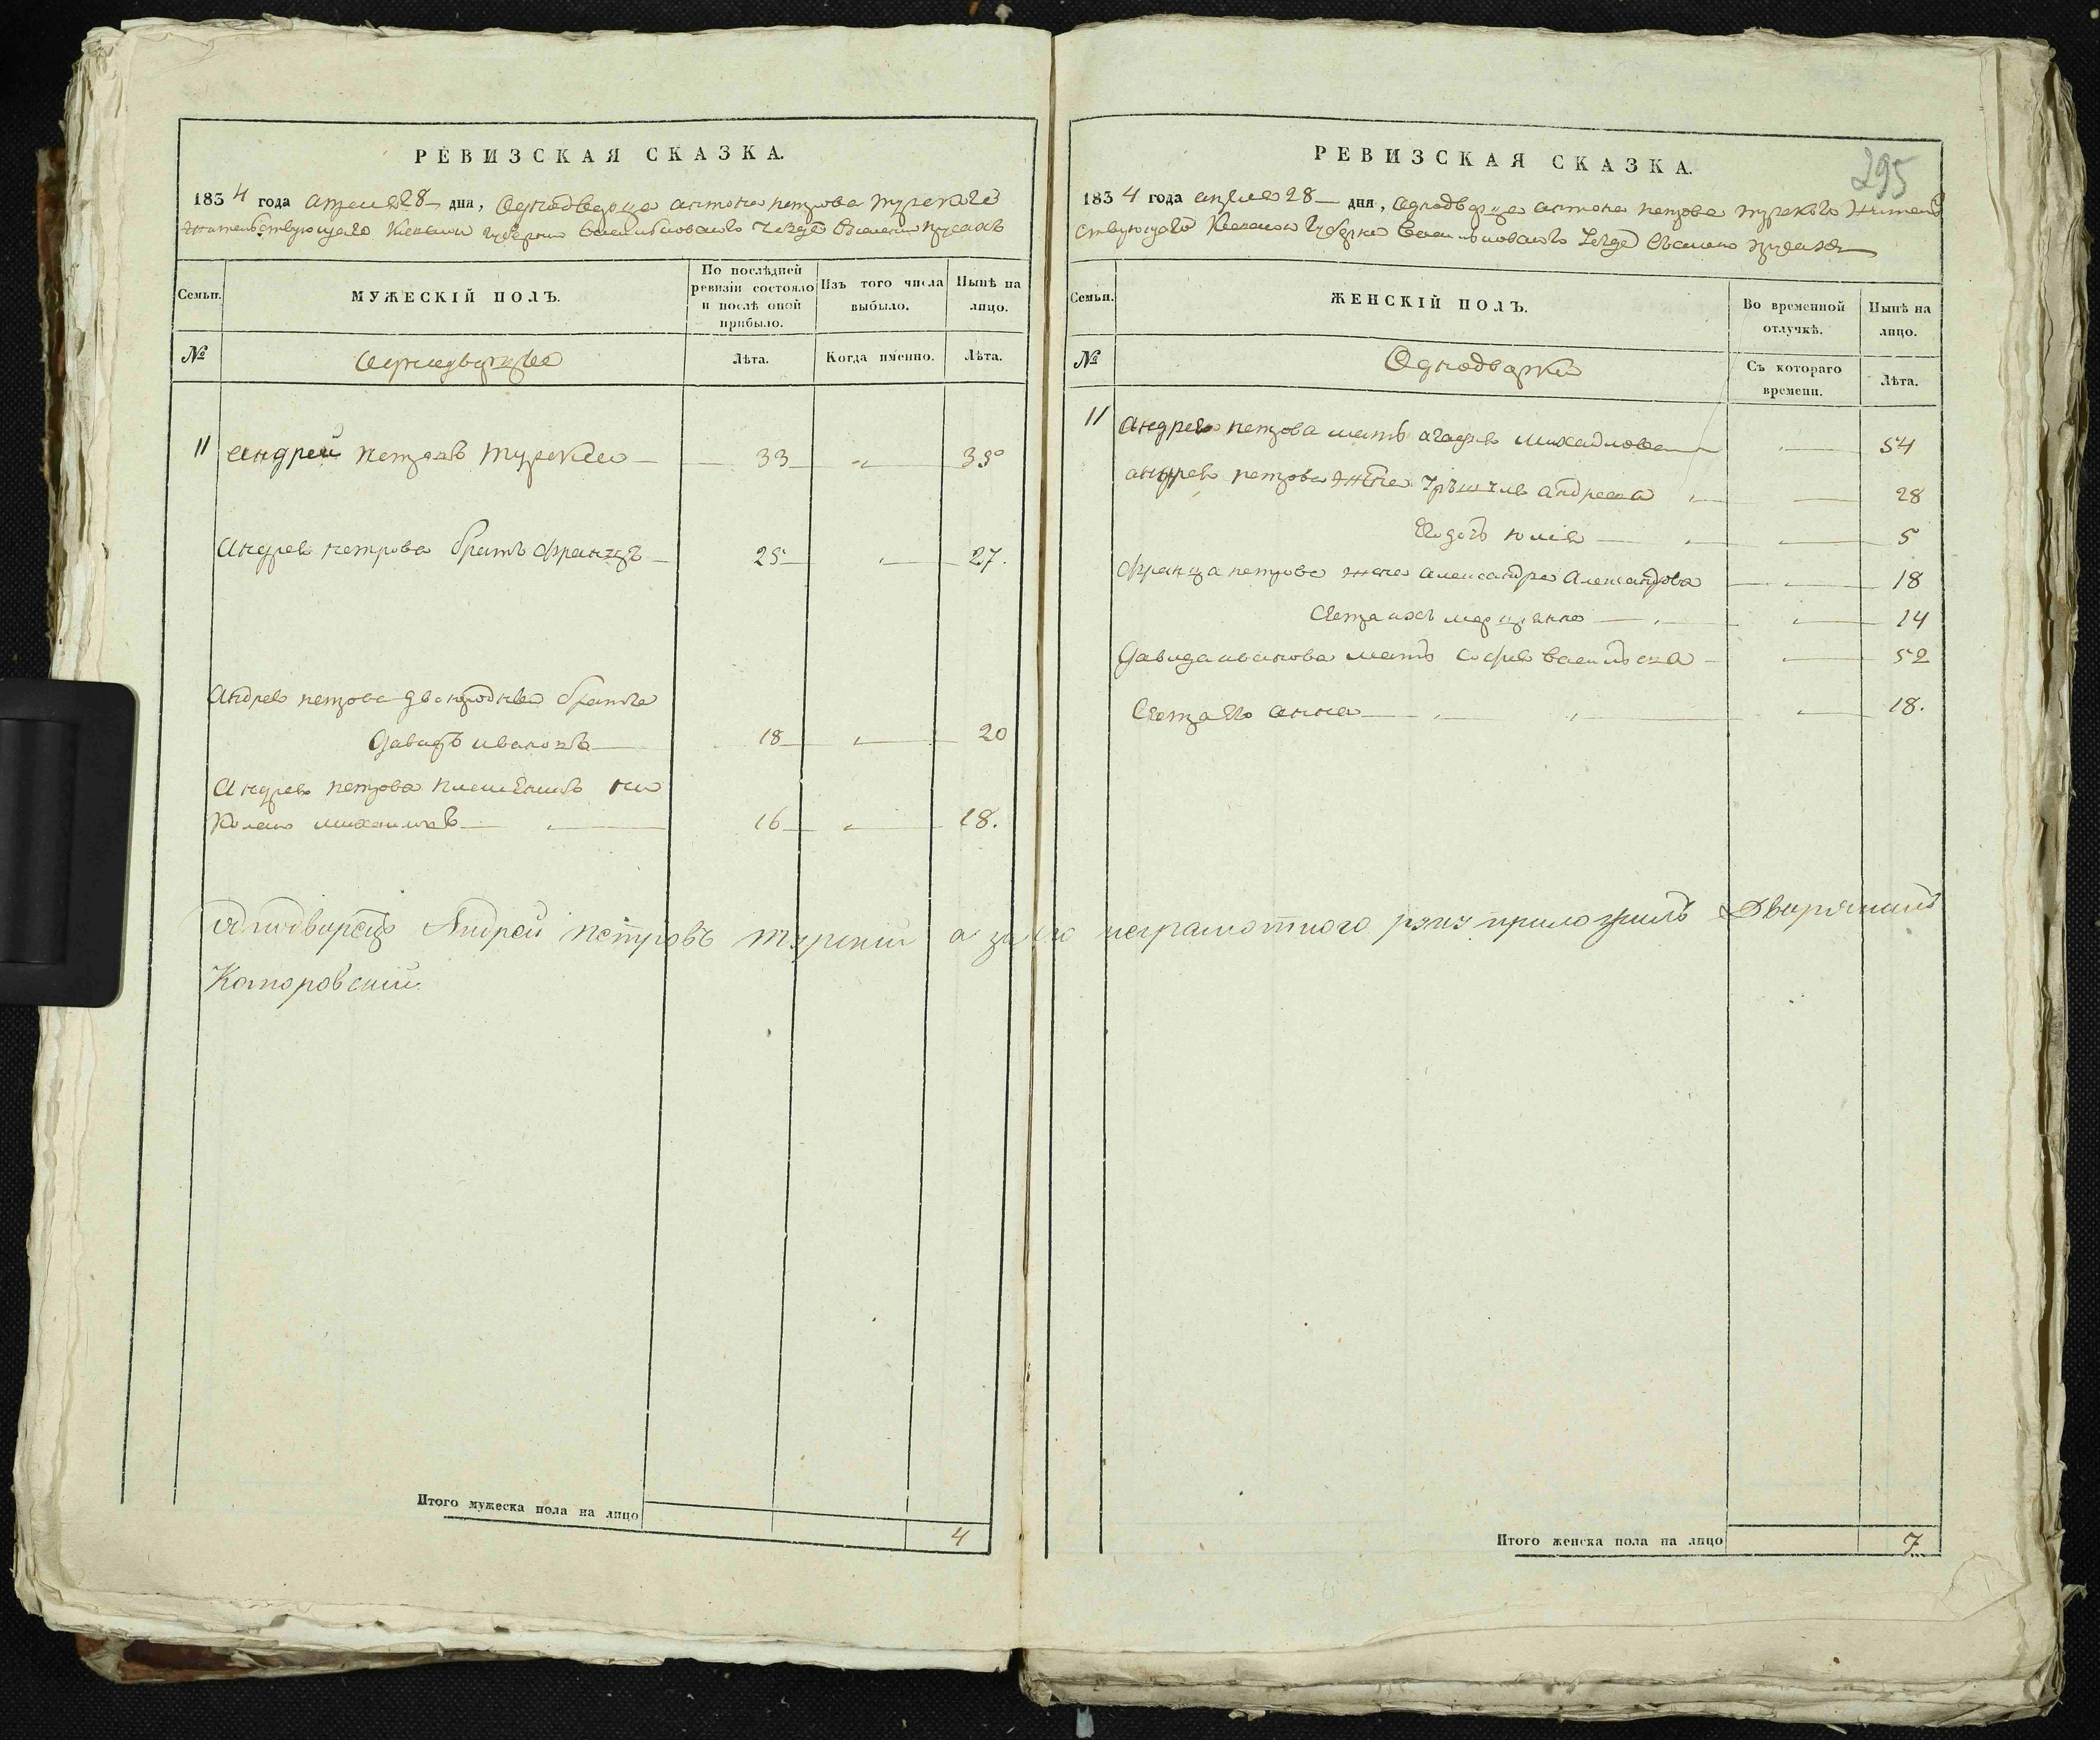 РЕВИЗСКАЯ СКАЗКА.
1834 года апреля 28 дня, Однодворца антона петрова турскаго
жительствующаго Киевской губернии васильковскаго уезда
Семьи.
МУЖЕСКІЙ ПОЛЪ.
По послѣдней ревизіи состояло и послѣ оной прибыло.
Изъ того числа выбыло.
Нынѣ на лицо.
№
Однодворцы
Лѣта.
Когда именно.
Лѣта.
11 Андрей петровъ турский 33 35
Андрея петрова братъ францъ 25 27.
Андрея петрова двоюродный братъ
Давидъ ивановъ 18 20
Андрея петрова племенникъ ни
колай михайловъ 16 18.
однодворецъ Андрей петровъ турский а за его неграмотного руку приложилъ Дворянинъ
Каторовский.
Итого мужеска пола на лицо 4
295
РЕВИЗСКАЯ СКАЗКА.
1834 года апреля 28 дня, Однодворца антона петрова турскаго жител
ствующаго Киевской губернии васильковскаго уезда
Семьи.
ЖЕНСКІЙ ПОЛЪ.
Во временной отлучкѣ.
Нынѣ на лицо.
№
Однодворки
Съ котораго времени.
Лѣта.
11 Андрея петрова мать агафия михайлова 54
андрея петрова жена андреева 28
Ево дочь юлия 5
франца петрова жена александра александрова 18
Сестра ихъ марцяна 14
Давида иванова мать софия васильева 52
Сестра Его анна 18.
Итого женска пола на лицо 7